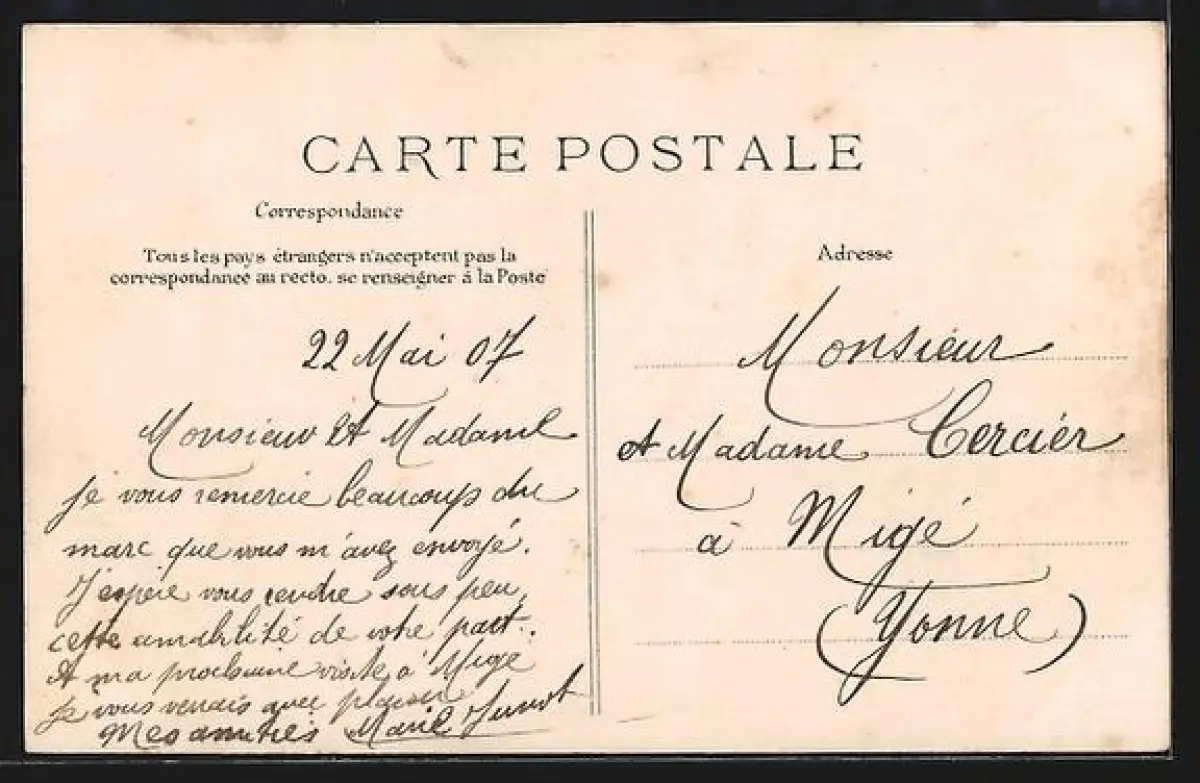 CARTE POSTALE
Correspondance
Tous les pays étrangers n'acceptent pas la
correspondance au recto. se renseigner à la Poste
22 Mai 07
Monsieur et Madame
je vous remercie beaucoup du
marc que vous m'avez envoyé.
J'espère vous rendre sous peu,
cette amabilité de votre part.
A ma prochaine visite à Migé
je vous verrais avec plaisir
Mes amitiés Marie
Adresse
Monsieur
et Madame Cercier
à Migé
(Yonne)